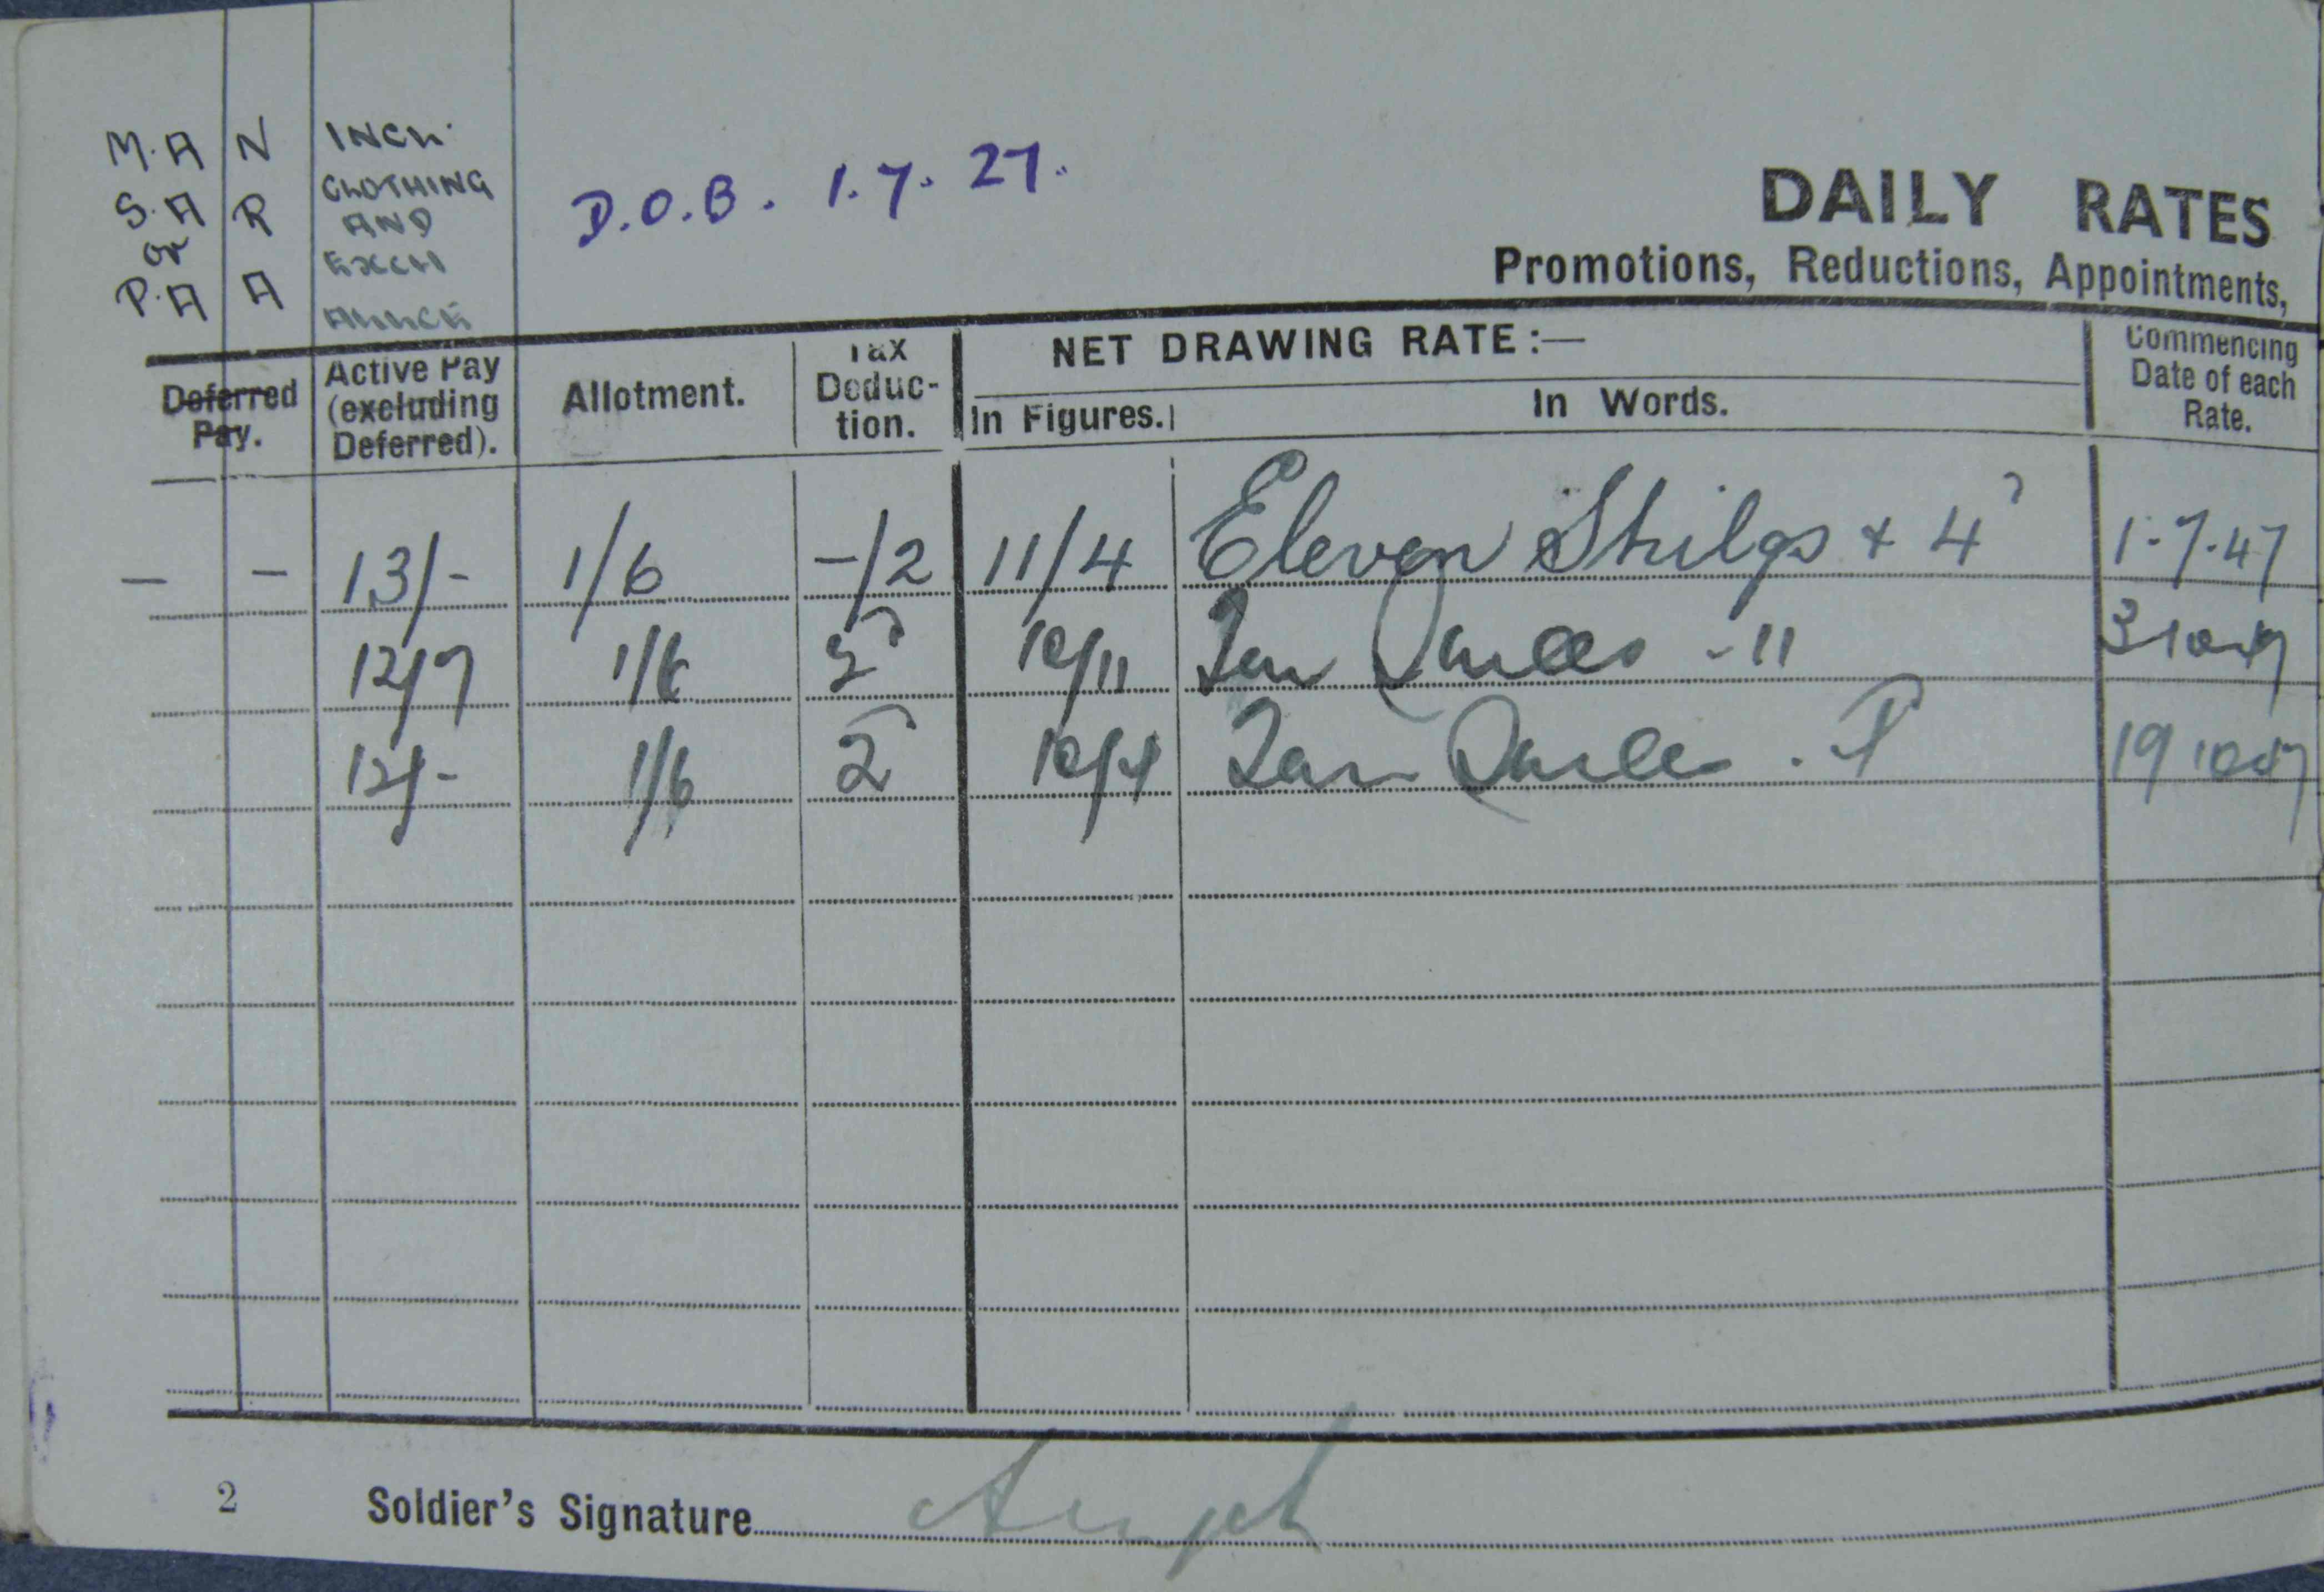 M.A N INCL.
S.A R CLOTHING
or AND
P.A A EXCH
ALLCE
D.O.B. 1.7.27.
DAILY RATES
Promotions, Reductions, Appointments,
Deferred Pay.
Active Pay (excluding Deferred).
Allotment.
Tax Deduction.
NET DRAWING RATE:—
In Figures.
In Words.
Commencing Date of each Rate.
— - 13/- 1/6 -/2 11/4 Eleven Shilgs + 4 1.7.47
12/7 1/6 2 10/11 Ten - 11
12/- 1/6 2 10/4 Ten 19 10 47
2 Soldier's Signature